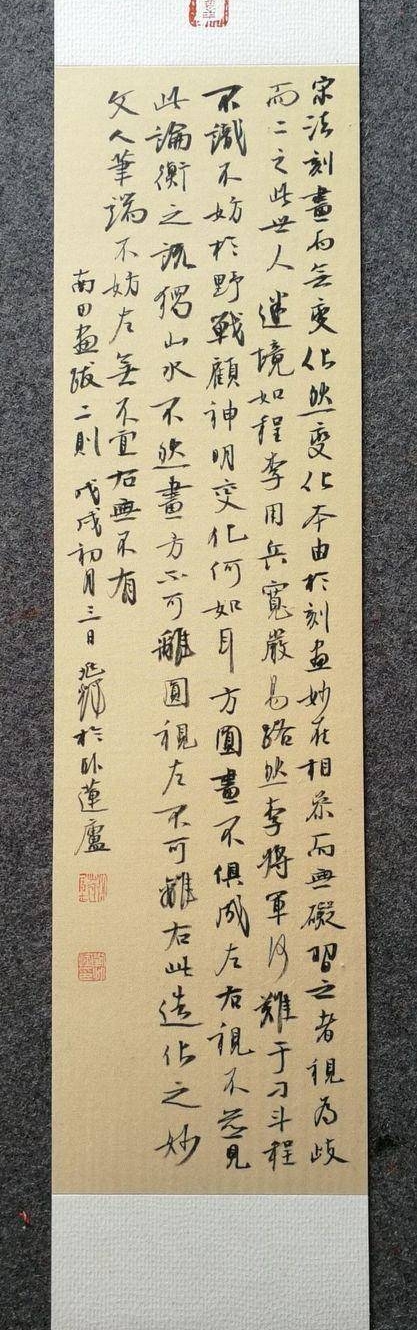 宗法刻畫而無變化然變化本由於刻畫妙在相參而無礙習之者視為歧
而二之此世人迷境如程李用兵寬嚴易路然李將軍何難于刁斗程
不識不妨於野戰顧神明變化何如耳方圓畫不俱成左右視不並見
此論衡之說獨山水不然畫方不可離圓視左不可離右此造化之妙
文人筆端不妨左無不宜右無不有
南田畫跋二則 戊戌初月三日 於卧蓮廬